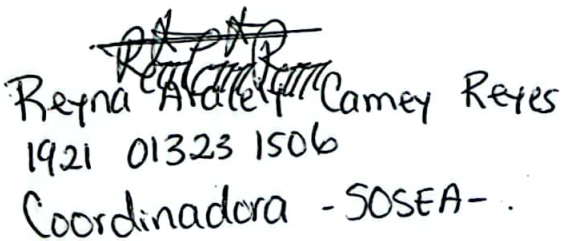 Reyna Aracely Camey Reyes
1921 01323 1506
Coordinadora - SOSEA - .